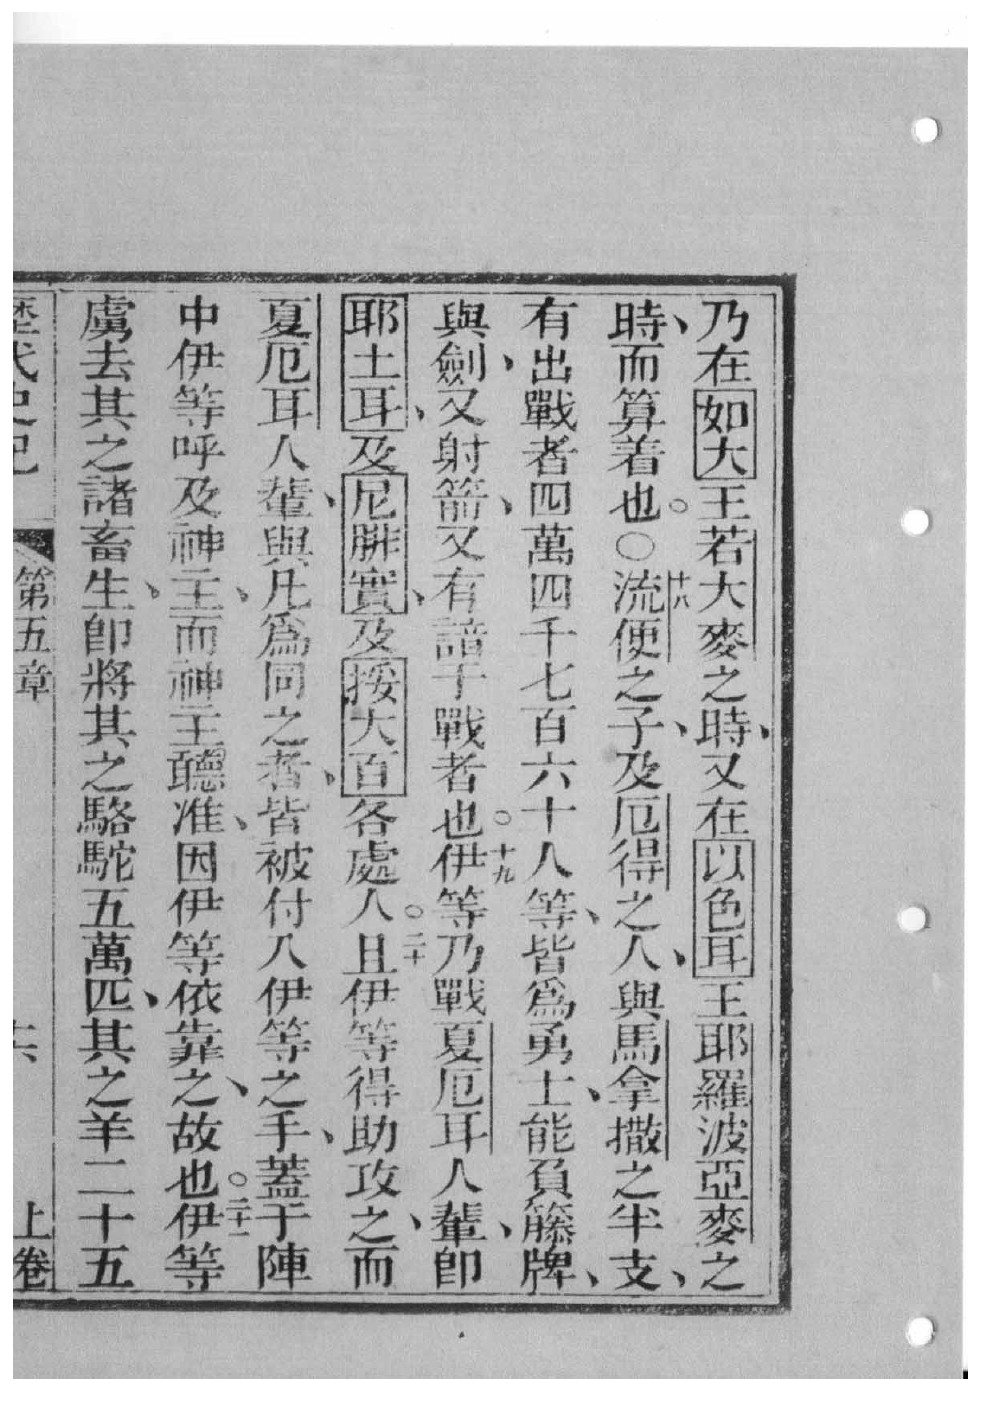 乃在如大王若大麥之時、又在以色耳王耶羅波亞麥之
時、而算着也。○十八流便之子、及厄得之人、與馬拿撒之半支、
有出戰者四萬四千七百六十人等、皆爲勇士、能負籐牌、
與劍、又射箭、又有諳于戰者也。十九伊等乃戰夏厄耳人輩、卽
耶土耳、及尼腓實、及挼大百各處人。二十且伊等得助攻之、而
夏厄耳人輩、與凡爲同之者、皆被付入伊等之手、蓋于陣
中伊等呼及神主、而神主聽准、因伊等依靠之、故也。二十一伊等
虜去其之諸畜生、卽將其之駱駝五萬匹、其之羊二十五
歷代史記 第五章 十六 上卷